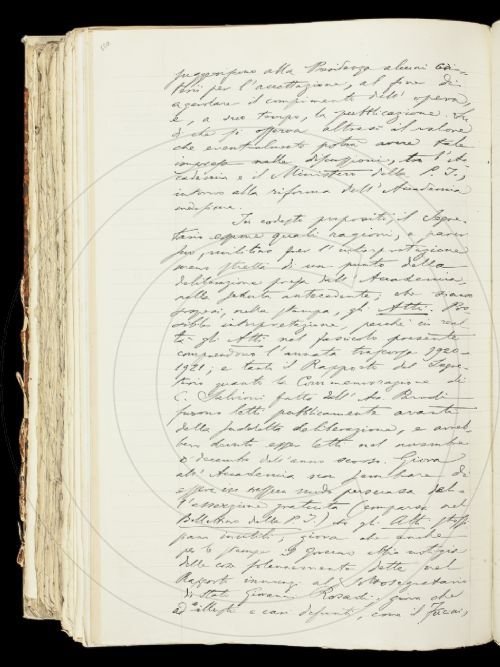 suggerissero alla Presidenza alcuni cri-
terii per l'accettazione, al fine di
agevolare il compimento dell'opera,
e, a suo tempo, la pubblicazione. Su
di che si osserva altresì il valore
che eventualmente potrà avere tale
impresa nelle discussioni, tra l'Ac-
cademia e il Ministero della P. I.,
intorno alla riforma dell'Accademia
medesima.
In codesto proposito, il Segre-
tario espone quali ragioni, a parer
suo, militino per l'interpretazione
meno stretta di un punto della
deliberazione presa dall'Accademia,
nella seduta antecedente, che siano
sospesi, nella stampa, gli Atti.
interpretazione, perchè in real-
tà gli Atti nel fascicolo presente
comprendono l'annata trascorsa 1920-
1921; e tanto il Rapporto del Segre-
tario quanto la Commemorazione di
C. Salvioni fatta dall'Acc. Parodi
furono letti pubblicamente avanti
della suddetta deliberazione, e avreb-
bero dovuto esser letti nel novembre
o dicembre dell'anno scorso. Giova
all'Accademia non sembrare di
essere in nessun modo persuasa dal-
l'asserzione gratuita (comparsa nel
Bollettino della P. I.) che gli Atti stessi
siano inutili; giova che anche
per la stampa il Governo abbia notizia
delle cose
Rapporto innanzi al Sottosegretario
di Stato Giovanni Rosadi; giova che
ad illustri e cari defunti, come il